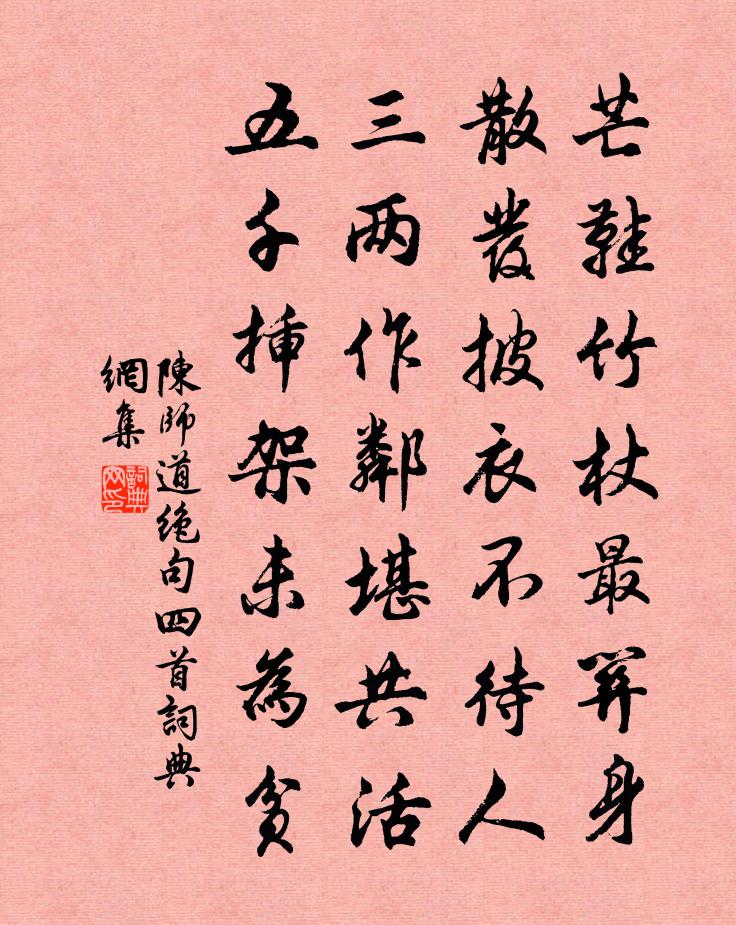 芒鞋竹杖最關身
散發披衣不待人
三两作鄰堪共活
五千挿架未為貧
陳師道絶句四首詞典
網集
詞典
网印